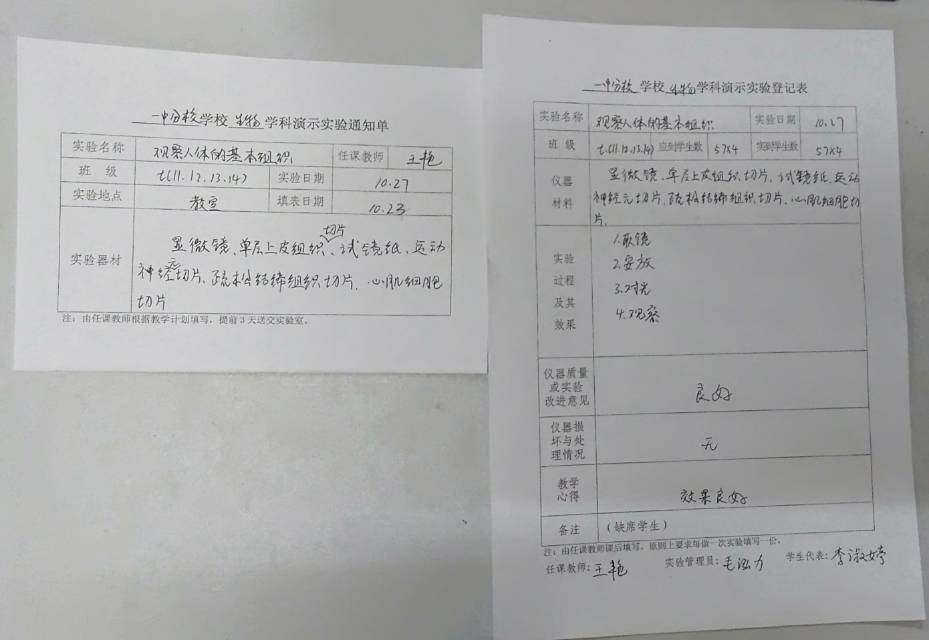 一中分校学校 生物 学科演示实验通知单
实验名称 观察人体的基本组织 任课教师 王艳
班 级 七(11.12.13.14) 实验日期 10.27
实验地点 教室 填表日期 10.23
切片
显微镜、单层上皮组织、试镜纸、运动
实验器材 神经切片、疏松结缔组织切片、心肌细胞
元
切片
注:由任课教师根据教学计划填写,提前3天送交实验室。
一中分校 学校 生物 学科演示实验登记表
实验名称 观察人体的基本组织 实验日期 10.27
班 级 七(11.12.13.14) 应到学生数 57X4 实到学生数 57X4
仪器 显微镜、单层上皮组织切片、试镜纸、运动
材料 神经元切片、疏松结缔组织切片、心肌细胞切
片.
1.取镜
实验 2.安放
过程 3.对光
及其 4.观察
效果
仪器质量
或实验 良好
改进意见
仪器损
坏与处 无
理情况
教学
心得 效果良好
备注 (缺席学生)
注:由任课教师课后填写,原则上要求每做一次实验填写一份。
任课教师:王艳 实验管理员:毛泓力 学生代表:李淑婷